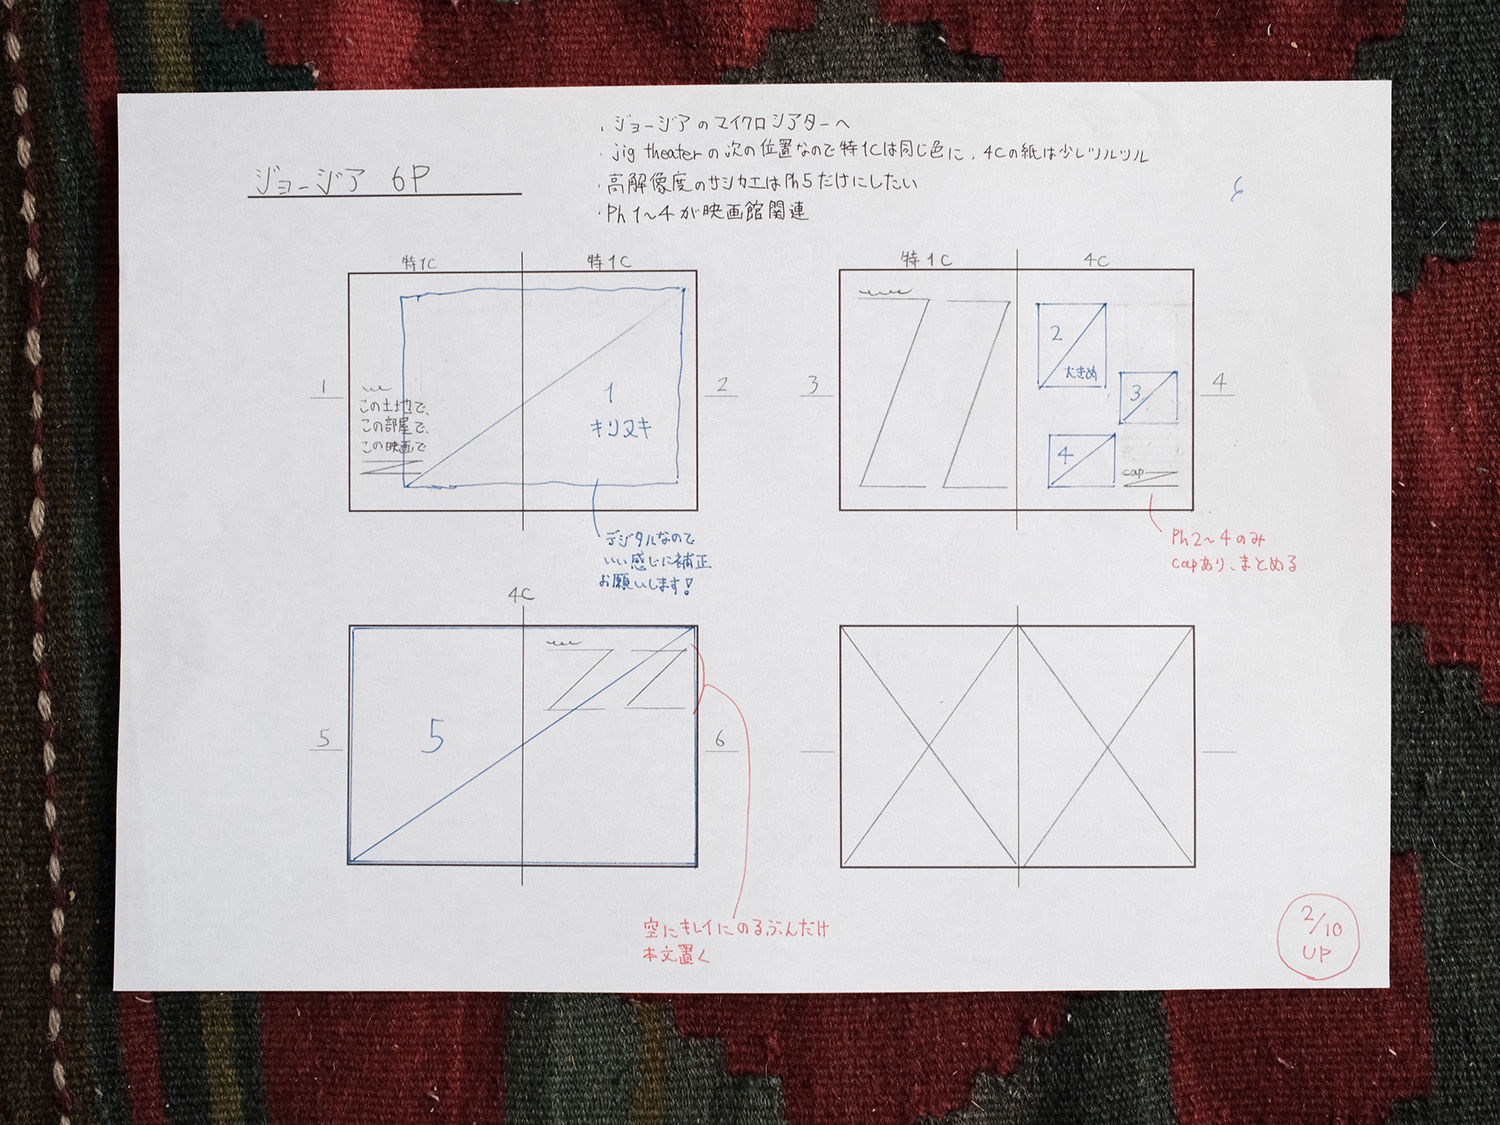 ジョージア 6P
・ジョージアのマイクロシアターへ
・jig theaterの次の位置なので特1Cは同じ色に、4Cの紙は少しツルツル
・高解像度のサシカエはPh5だけにしたい
・Ph1〜4が映画館関連
6
特1C
特1C
1
2
この土地で、
この部屋で、
この映画で
1
キリヌキ
デジタルなので
いい感じに補正
お願いします!
特1C
4C
3
4
2
大きめ
3
4
cap
Ph2〜4のみ
capあり、まとめる
4C
5
6
5
空にキレイにのるぶんだけ
本文置く
2/10
UP